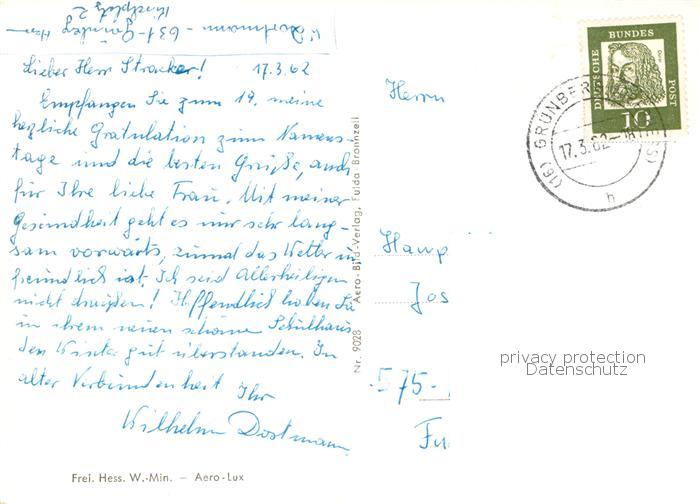 W. Dostmann - 631 - Grünberg Hess
Kirchplatz 2
Lieber Herr Stracker! 17.3.62
Empfangen Sie zum 19. meine
herzliche Gratulation zum Namens-
tage und die besten Grüße, auch
für Ihre liebe Frau. Mit meiner
Gesundheit geht es nur sehr lang-
sam vorwärts, zumal das Wetter un
freundlich ist. Ich seid Allerheiligen
nicht draußen! Hoffendlich haben Sie
in ihrem neuen schönen Schulhaus
den Winter gut überstanden. In
alter Verbundenheit Ihr
Wilhelm Dostmann
Frei. Hess. W.-Min. – Aero-Lux
Nr. 9028 Aero-Bild-Verlag, Fulda-Bronnzell
DEUTSCHE BUNDES POST
Dürer
10
(16) GRÜNBERG
17.3.62-18
h
Herrn
Haup
Jos
575-
privacy protection
Datenschutz